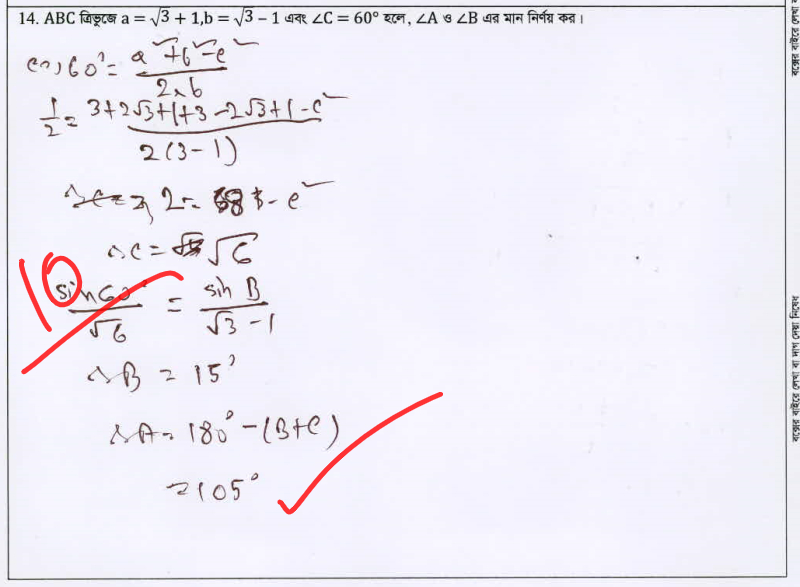 14. ABC ত্রিভুজে a = √3 + 1, b = √3 − 1 এবং ∠C = 60° হলে, ∠A ও ∠B এর মান নির্ণয় কর।
cos 60° = (a² + b² − c²) / 2ab
1/2 = (3 + 2√3 + 1 + 3 − 2√3 + 1 − c²) / 2(3 − 1)
2 = 8 − c²
∴ c = √6
10
sin 60° / √6 = sin B / (√3 − 1)
∴ B = 15°
∴ A = 180° − (B + C)
= 105°
বক্সের বাইরে লেখা বা দাগ দেয়া নিষেধ